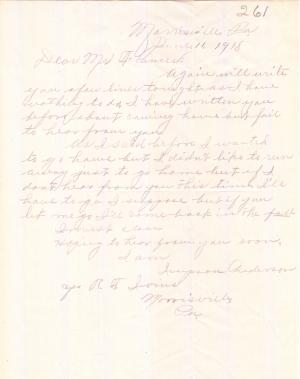 261
Morrisville Pa
June 16 1918
Dear Mr Francis
Again will write
you a few lines tonight as I have
nothing to do I have written you
before about coming home but fail
to hear from you.
As I said before I wanted
to go home but I didn't like to run
away just to go home but if I
don't hear from you this time I'll
have to go I suppose but if you
let me go I'll come back in the fall
I must close
Hoping to hear from you soon,
I am
Simpson Anderson
R F
Morrisville
Pa